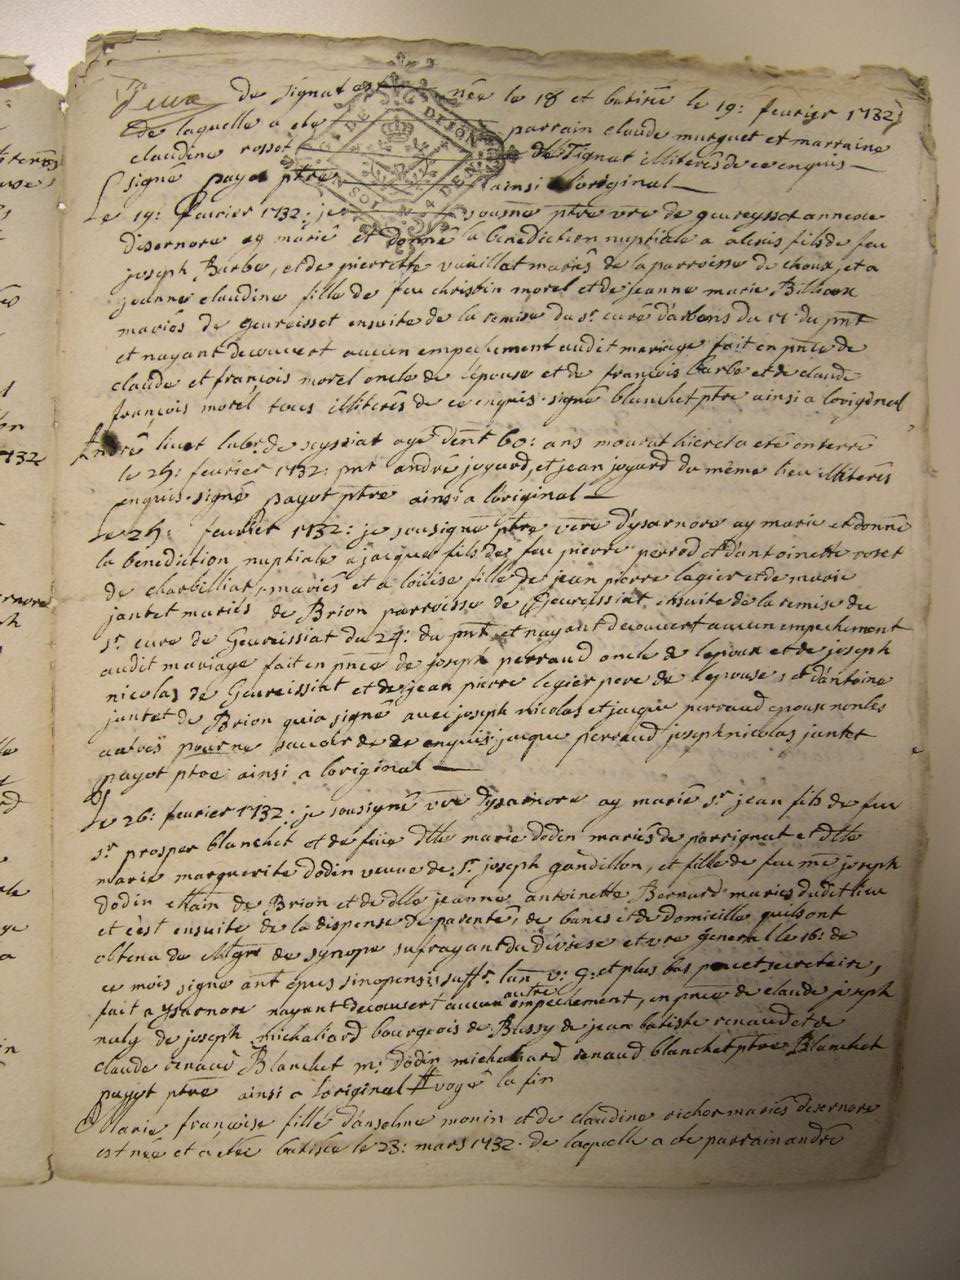 de signat est née le 18 et batisée le 19: feurier 1732
de laquelle a ete parrain claude murguet et marraine
claudine rosset de Tignat illiterés de ce enquis
signé payot ptre ainsi a loriginal
GN. DE DIJON
Le 19: feurier 1732: je sousné ptre vre de geureysset annexe
disernore ay marié et donné la benediction nuptiale a alexis fils de feu
joseph Barbe, et de pierrette vuaillat mariés de la parroisse de choux, et a
jeanne claudine fille de feu christin morel et de jeanne marie
mariés de geureisset ensuite de la remise du sr. curé d'arbens du 17. du pnt
et nayant decouvert aucun empechement audit mariage fait en pnce de
claude et françois morel oncle de l'epouse et de françois barbe et de claude
françois morel tous illiterés de ce enquis. signé blanchet ptre ainsi a loriginal
André huet labr. de seyssiat agé d'ent 60: ans mourut hier et a eté enterré
le 25: feurier 1732: pnt andré joyard, et jean joyard du même lieu illiterés
enquis. signé payot ptre ainsi a loriginal
Le 25: feurier 1732: je sousigné ptre vre d'ysarnore ay marié et donné
la benediction nuptiale a jacque fils de feu pierre perrod et d'antoinette roset
de charbilliat, mariés et a loüise fille de jean pierre lagier et de marie
jantet mariés de Brion parroisse de Geureissiat ensuite de la remise du
sr. cure de Geureissiat du 24: du pnt et nayant decouvert aucun empechement
audit mariage fait en pnce de joseph perraud oncle de lepoux et de joseph
nicolas de Geureissiat et de jean pierre legier pere de lepouse, et d'antoine
jantet de Brion qui a signé avec joseph nicolas et jacque perraud epoux non les
autres pour ne sauoir de ce enquis. jacque perraud joseph nicolas jantet
payot ptre ainsi a loriginal
Le 26: feurier 1732: je sousigné vre d'ysarnore ay marié sr. jean fils de feu
sr. prosper blanchet et de feüe dlle marie dodin mariés de parrignat et dlle
marie marguerite dodin veuve de sr. joseph gandillon, et fille de feu me joseph
dodin chain de Brion et de dlle jeanne antoinette Bernard mariés dudit lieu
et c'est ensuite de la dispense de parenté, de bancs et de domicille quils ont
obtenu de Mgr de synope sufragant du diocese et vre general le 16: de
ce mois signé ant epus sinopensis suffr. lun. v: g: et plus bas secretaire,
fait a ysarnore nayant decouvert aucun autre empechement, en pnce de claude joseph
naly de joseph michaliard bourgeois de Bussy de jean batiste renaud et de
claude renaud Blanchet m. dodin michaliard renaud blanchet ptre Blanchet
payot ptre ainsi a loriginal # voyé la fin
Marie françoise fille d'anselme monin et de claudine richer mariés disernore
est née et a eté batisée le 23: mars 1732. de laquelle a eté parrain andré